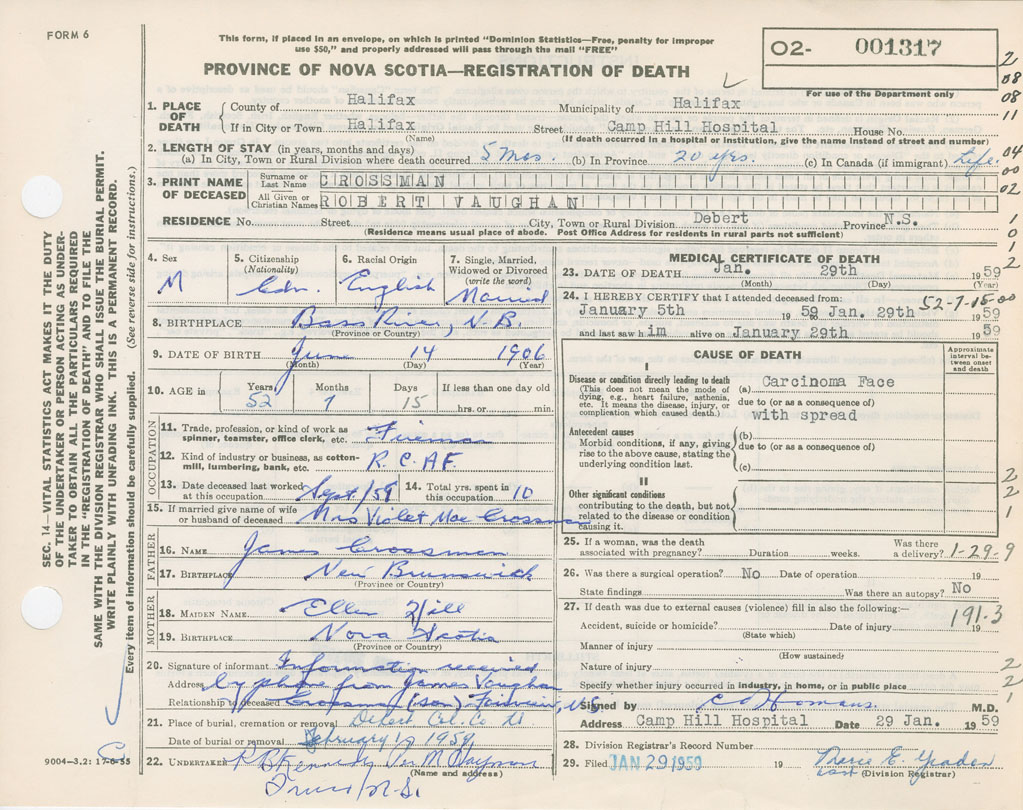 FORM 6
This form, if placed in an envelope, on which is printed "Dominion Statistics—Free, penalty for improper
use $50," and properly addressed will pass through the mail "FREE"
PROVINCE OF NOVA SCOTIA—REGISTRATION OF DEATH
O2- 001317
For use of the Department only
2
08
08
11
04
00
02
1
0
1
2
1. PLACE OF DEATH
County of Halifax Municipality of Halifax
If in City or Town Halifax Street Camp Hill Hospital House No.
(Name) (If death occurred in a hospital or institution, give the name instead of street and number)
2. LENGTH OF STAY (in years, months and days)
(a) In City, Town or Rural Division where death occurred 5 Mos. (b) In Province 20 yrs. (c) In Canada (if immigrant) Life
3. PRINT NAME OF DECEASED
Surname or Last Name CROSSMAN
All Given or Christian Names ROBERT VAUGHAN
RESIDENCE No. Street City, Town or Rural Division Debert Province N.S.
(Residence means usual place of abode. Post Office Address for residents in rural parts not sufficient)
4. Sex
M
5. Citizenship
(Nationality)
Cdn.
6. Racial Origin
English
7. Single, Married,
Widowed or Divorced
(write the word)
Married
8. BIRTHPLACE Bass River, N.B.
(Province or Country)
9. DATE OF BIRTH June 14 1906
(Month) (Day) (Year)
10. AGE in Years Months Days If less than one day old
52 7 15 hrs. or min.
OCCUPATION
11. Trade, profession, or kind of work as
spinner, teamster, office clerk, etc. Fireman
12. Kind of industry or business, as cotton-
mill, lumbering, bank, etc. R.C.A.F.
13. Date deceased last worked
at this occupation Sept/58
14. Total yrs. spent in
this occupation 10
15. If married give name of wife
or husband of deceased Mrs Violet Mae Crossman
FATHER
16. NAME James Crossman
17. BIRTHPLACE New Brunswick
(Province or Country)
MOTHER
18. MAIDEN NAME Ellen Hill
19. BIRTHPLACE Nova Scotia
(Province or Country)
20. Signature of informant Information received
Address by phone from James Vaughan
Relationship to deceased Crossman (son) Fairview, N.S.
21. Place of burial, cremation or removal Debert Col. Co
Date of burial or removal February 1, 1959
22. UNDERTAKER
(Name and address)
Truro N.S.
MEDICAL CERTIFICATE OF DEATH
23. DATE OF DEATH Jan. 29th 1959
(Month) (Day) (Year)
24. I HEREBY CERTIFY that I attended deceased from: 52-7-15-00
January 5th 1959 Jan. 29th 1959
and last saw him alive on January 29th 1959
CAUSE OF DEATH
Approximate interval between onset and death
I
Disease or condition directly leading to death
(This does not mean the mode of
dying, e.g., heart failure, asthenia,
etc. It means the disease, injury, or
complication which caused death.)
(a) Carcinoma Face
due to (or as a consequence of)
with spread
Antecedent causes
Morbid conditions, if any, giving
rise to the above cause, stating the
underlying condition last.
(b)
due to (or as a consequence of)
(c)
II
Other significant conditions
contributing to the death, but not
related to the disease or condition
causing it.
2
2
1
25. If a woman, was the death
associated with pregnancy? Duration weeks. Was there
a delivery? 1-29-9
26. Was there a surgical operation? No Date of operation 19
State findings Was there an autopsy? No
27. If death was due to external causes (violence) fill in also the following:— 191.3
Accident, suicide or homicide? Date of injury 19
(State which)
Manner of injury
(How sustained)
Nature of injury
Specify whether injury occurred in industry, in home, or in public place
2
2
1
Signed by M.D.
Address Camp Hill Hospital Date 29 Jan. 1959
28. Division Registrar's Record Number
29. Filed JAN 29 1959 19
(Division Registrar)
SEC. 14—VITAL STATISTICS ACT MAKES IT THE DUTY
OF THE UNDERTAKER OR PERSON ACTING AS UNDER-
TAKER TO OBTAIN ALL THE PARTICULARS REQUIRED
IN THE "REGISTRATION OF DEATH" AND TO FILE THE
SAME WITH THE DIVISION REGISTRAR WHO SHALL ISSUE THE BURIAL PERMIT.
WRITE PLAINLY WITH UNFADING INK. THIS IS A PERMANENT RECORD.
Every item of information should be carefully supplied. (See reverse side for instructions.)
9004-3.2: 17-6-55